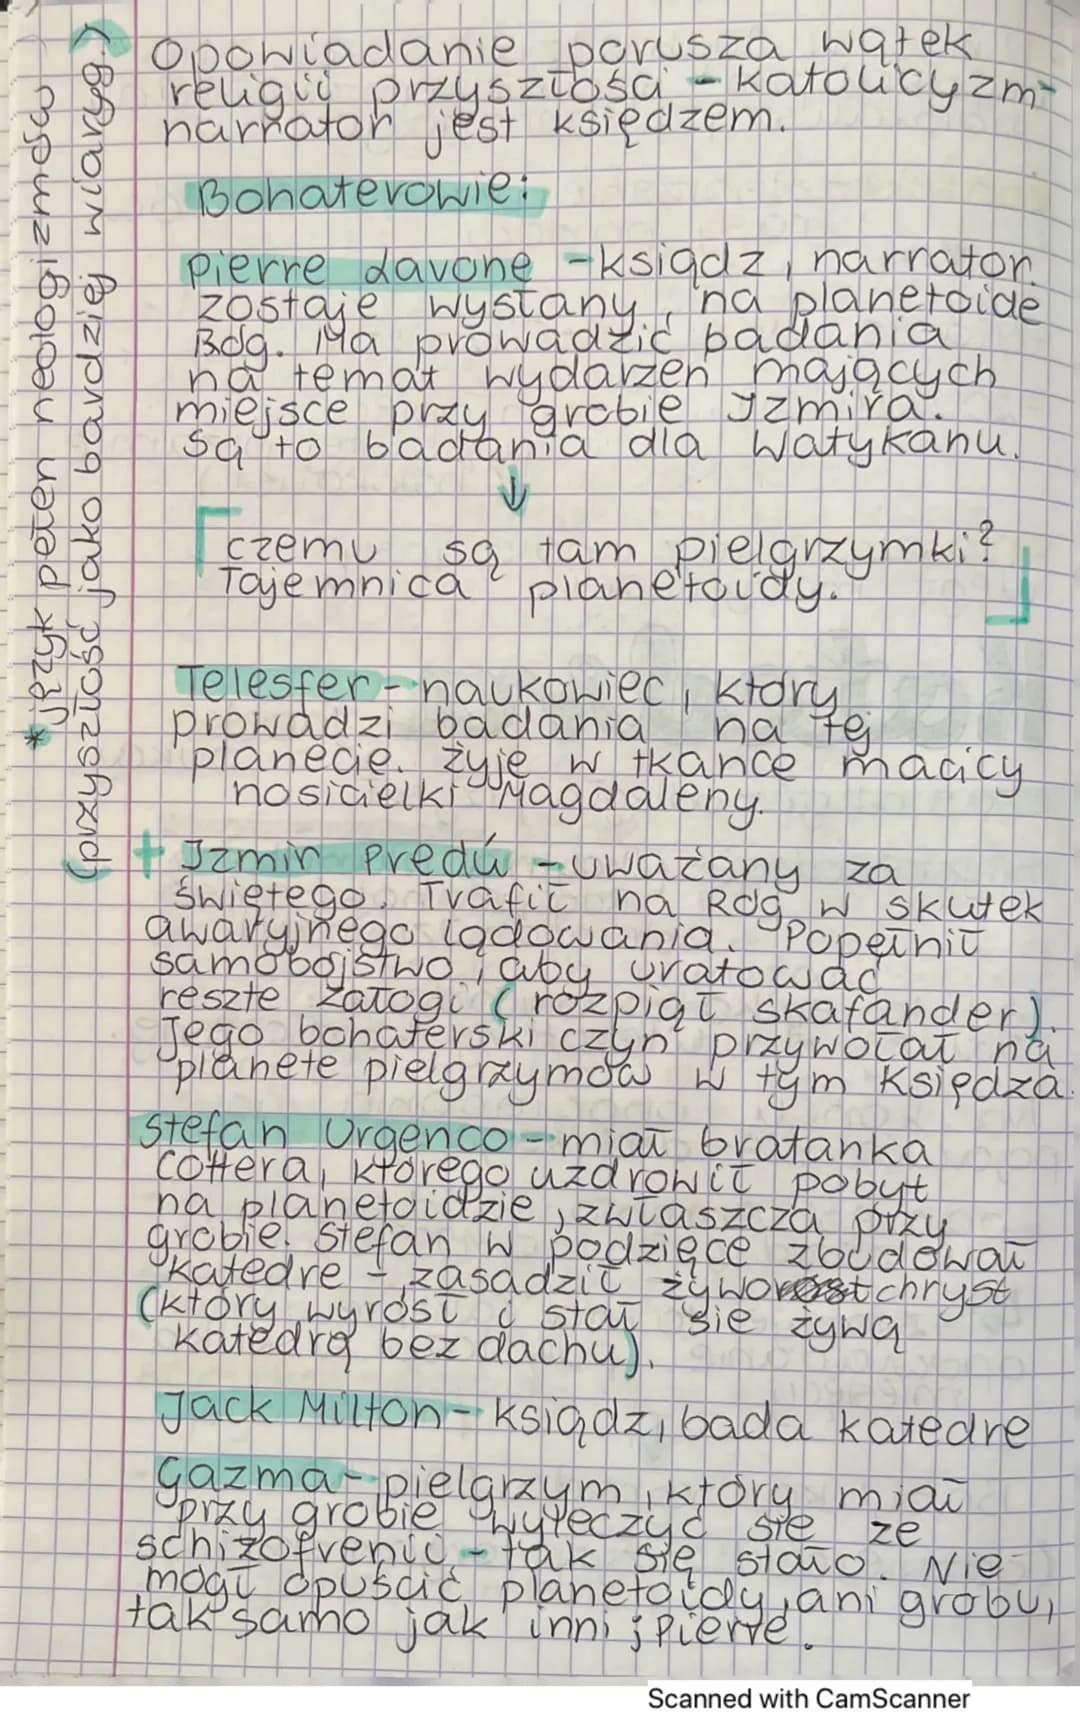 *język pełen neologizmów
(przyszłość jako bardziej wiaryg.)
Opowiadanie porusza wątek
religii przyszłości - katolicyzm-
narrator jest księdzem.
Bohaterowie:
pierre lavone - ksiądz, narrator.
zostaje wysłany, na planetoide
Rdg. Ma prowadzić badania
na temat wydarzeń mających
miejsce przy grobie Izmira.
Są to badania dla Watykanu.
↓
czemu są tam pielgrzymki?
Tajemnica planetoidy.
Telesfer - naukowiec, który
prowadzi badania na tej
planecie. żyje w tkance macicy
nosicielki Magdaleny.
+ Izmir Predú - uważany za
świętego. Trafił na Rdg w skutek
awaryjnego lądowania. Popełnił
samobójstwo, aby uratować
reszte załogi (rozpiął skafander).
Jego bohaterski czyn przywołał na
planete pielgrzymów w tym księdza.
Stefan Urgenco - miał bratanka
Cottera, którego uzdrowił pobyt
na planetoidzie, zwłaszcza przy
grobie. Stefan w podzięce zbudował
katedre - zasadził żywochryst
(który wyrósł i stał sie żywą
katedrą bez dachu).
Jack Milton - ksiądz, bada katedre
Gazma - pielgrzym, który miał
przy grobie wyleczyć sie ze
schizofrenii - tak się stało. Nie
mógł opuścić planetoidy, ani grobu,
tak samo jak inni i Pierre.
Scanned with CamScanner